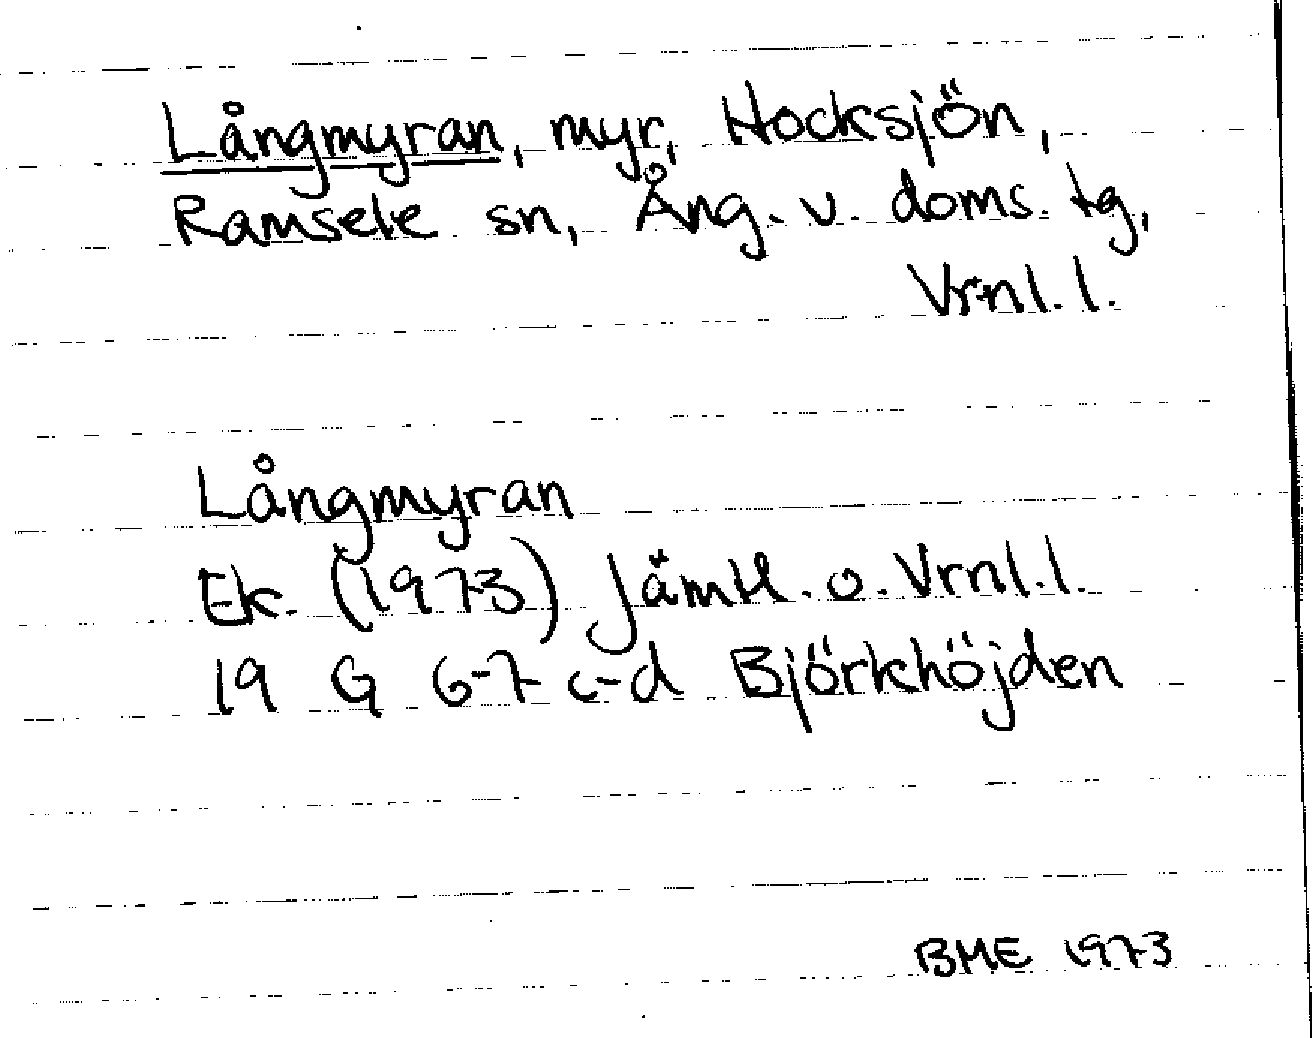 Långmyran, myr, Hocksjön,
Ramsele sn, Ång. v. doms. tg,
Vrnl. l.
Långmyran
Ek. (1973) Jämtl. o. Vrnl. l.
19 G 6-7 c-d Björkhöjden
BME 1973